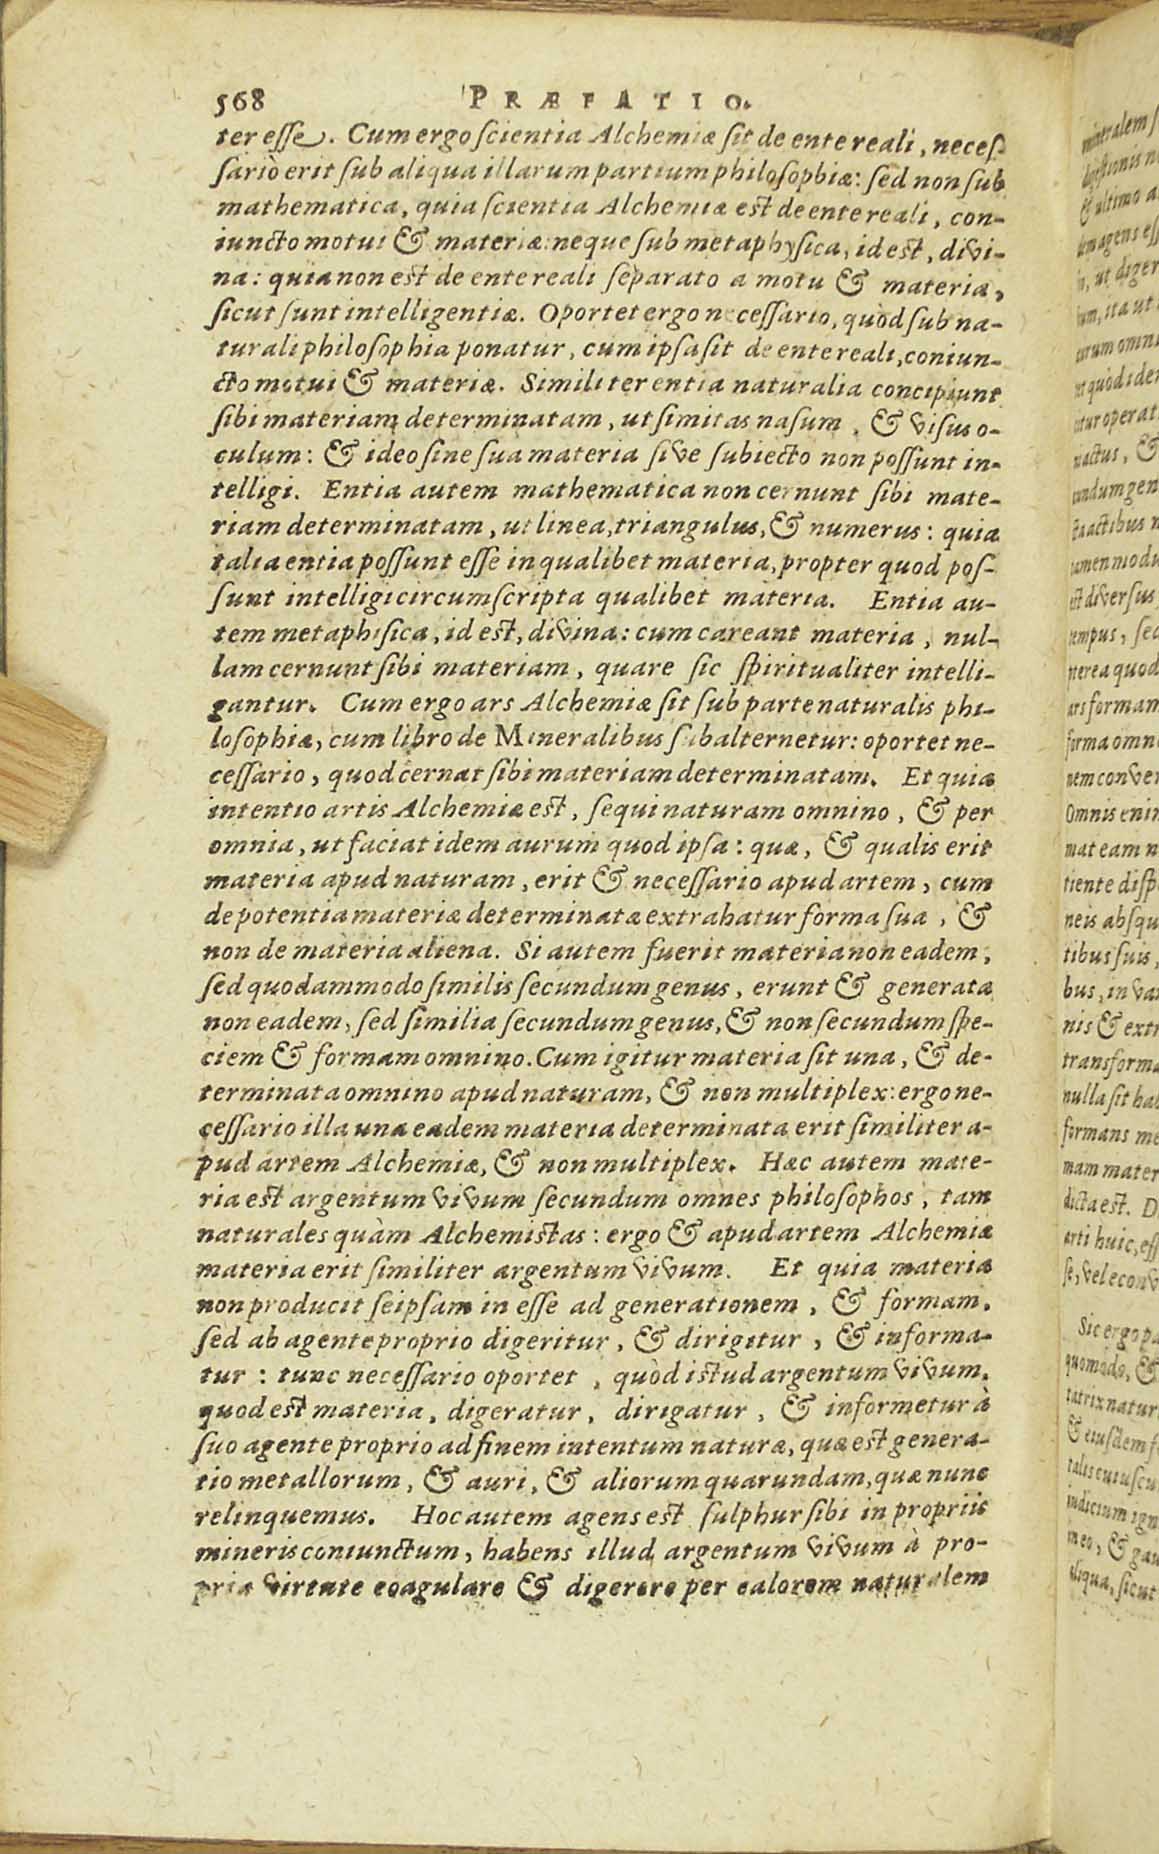 568 PRÆFATIO.
ter esse. Cum ergo scientia Alchemiæ sit de ente reali, neces-
sariò erit sub aliqua illarum partium philosophiæ: sed non sub
mathematica, quia scientia Alchemiæ est de ente reali, con-
iuncto motui & materiæ: neque sub metaphysica, id est, divi-
na: quia non est de ente reali separato a motu & materia,
sicut sunt intelligentiæ. Oportet ergo necessario, quòd sub na-
turali philosophia ponatur, cum ipsa sit de ente reali, coniun-
cto motui & materiæ. Similiter entia naturalia concipiunt
sibi materiam determinatam, ut simitas nasum, & visus o-
culum: & ideo sine sua materia sive subiecto non possunt in-
telligi. Entia autem mathematica non cernunt sibi mate-
riam determinatam, ut linea, triangulus, & numerus: quia
talia entia possunt esse in qualibet materia, propter quod pos-
sunt intelligi circumscripta qualibet materia. Entia au-
tem metaphisica, id est, divina: cum careant materia, nul-
lam cernunt sibi materiam, quare sic spiritualiter intelli-
gantur. Cum ergo ars Alchemiæ sit sub parte naturalis phi-
losophiæ, cum libro de Mineralibus subalternetur: oportet ne-
cessario, quod cernat sibi materiam determinatam. Et quia
intentio artis Alchemiæ est, sequi naturam omnino, & per
omnia, ut faciat idem aurum quod ipsa: quæ, & qualis erit
materia apud naturam, erit & necessario apud artem, cum
de potentia materiæ determinatæ extrahatur forma sua, &
non de materia aliena. Si autem fuerit materia non eadem,
sed quodammodo similis secundum genus, erunt & generata
non eadem, sed similia secundum genus, & non secundum spe-
ciem & formam omnino. Cum igitur materia sit una, & de-
terminata omnino apud naturam, & non multiplex: ergo ne-
cessario illa una eadem materia determinata erit similiter a-
pud artem Alchemiæ, & non multiplex. Hæc autem mate-
ria est argentum vivum secundum omnes philosophos, tam
naturales quàm Alchemistas: ergo & apud artem Alchemiæ
materia erit similiter argentum vivum. Et quia materia
non producit seipsam in esse ad generationem, & formam,
sed ab agente proprio digeritur, & dirigitur, & informa-
tur: tunc necessario oportet, quòd istud argentum vivum,
quod est materia, digeratur, dirigatur, & informetur à
suo agente proprio ad finem intentum naturæ, quæ est genera-
tio metallorum, & auri, & aliorum quarundam, quæ nunc
relinquemus. Hoc autem agens est sulphur sibi in propriis
mineris coniunctum, habens illud argentum vivum à pro-
pria virtute coagulare & digerere per calorem naturalem
mineralem
digestionis
& ultimo
agens
in, ut diger
ita ut
omni
quòd ider
operat
&
gen
actibus
tamen modu
est diversus
tempus, sed
pterea quod
ars forman
forma omn
nem conver
Omnis enim
mat eam n
tiente disp
neis absqu
tibus suis,
bus, in va
nis & extr
transforma
nulla sit hab
formans me
mam mater
dicta est. D
arti huic, ess
se, vel econv
Sic ergo pa
quomodo, &
tatrix natur
& eiusdem f
talis cuiuscu
iudicium ign
meo, & gau
aliqua, sicut